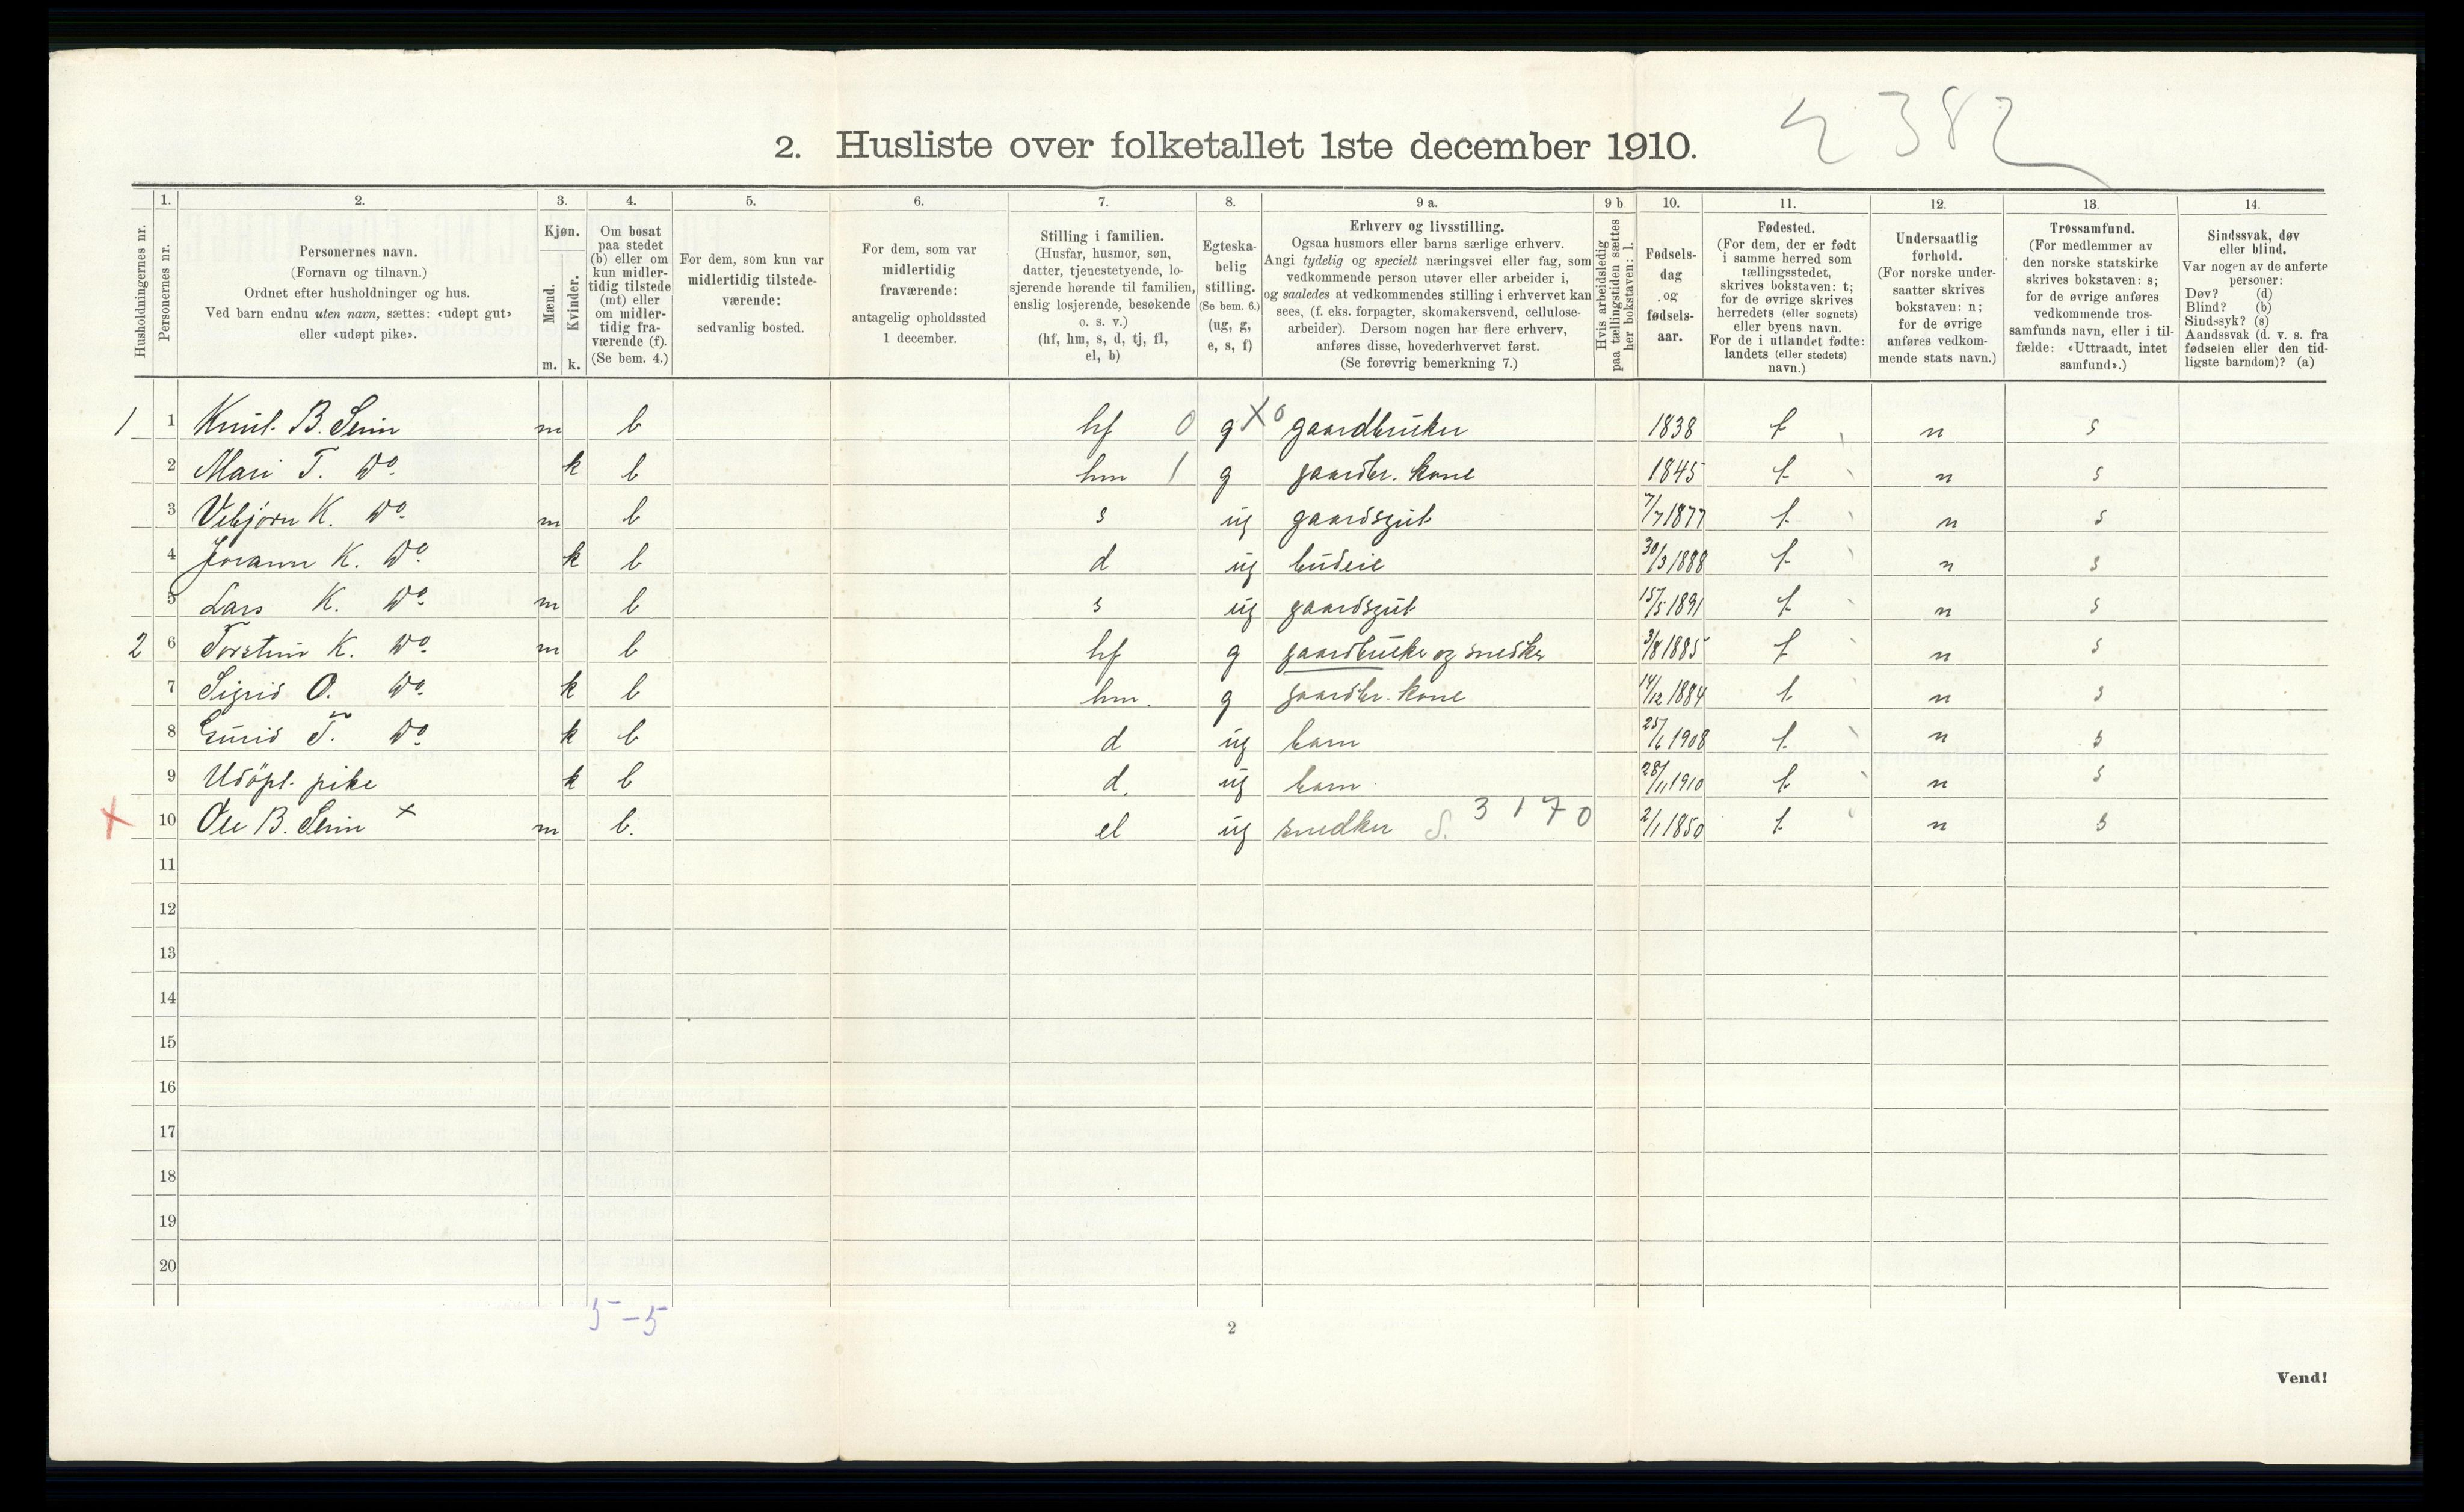 2 382
2. Husliste over folketallet 1ste december 1910.
Husholdningernes nr.
1.
Personernes nr.
2.
Personernes navn.
(Fornavn og tilnavn.)
Ordnet efter husholdninger og hus.
Ved barn endnu uten navn, sættes: «udøpt gut»
eller «udøpt pike».
3.
Kjøn.
Mænd.
Kvinder.
m. k.
4.
Om bosat
paa stedet
(b) eller om
kun midler-
tidig tilstede
(mt) eller
om midler-
tidig fra-
værende (f).
(Se bem. 4.)
5.
For dem, som kun var
midlertidig tilstede-
værende:
sedvanlig bosted.
6.
For dem, som var
midlertidig
fraværende:
antagelig opholdssted
1 december.
7.
Stilling i familien.
(Husfar, husmor, søn,
datter, tjenestetyende, lo-
sjerende hørende til familien,
enslig losjerende, besøkende
o. s. v.)
(hf, hm, s, d, tj, fl,
el, b)
8.
Egteska-
belig
stilling.
(Se bem. 6.)
(ug, g,
e, s, f)
9 a.
Erhverv og livsstilling.
Ogsaa husmors eller barns særlige erhverv.
Angi tydelig og specielt næringsvei eller fag, som
vedkommende person utøver eller arbeider i,
og saaledes at vedkommendes stilling i erhvervet kan
sees, (f. eks. forpagter, skomakersvend, cellulose-
arbeider). Dersom nogen har flere erhverv,
anføres disse, hovederhvervet først.
(Se forøvrig bemerkning 7.)
9 b
Hvis arbeidsledig
paa tællingstiden sættes
her bokstaven: l.
10.
Fødsels-
dag
og
fødsels-
aar.
11.
Fødested.
(For dem, der er født
i samme herred som
tællingsstedet,
skrives bokstaven: t;
for de øvrige skrives
herredets (eller sognets)
eller byens navn.
For de i utlandet fødte:
landets (eller stedets)
navn.)
12.
Undersaatlig
forhold.
(For norske under-
saatter skrives
bokstaven: n;
for de øvrige
anføres vedkom-
mende stats navn.)
13.
Trossamfund.
(For medlemmer av
den norske statskirke
skrives bokstaven: s;
for de øvrige anføres
vedkommende tros-
samfunds navn, eller i til-
fælde: «Uttraadt, intet
samfund».)
14.
Sindssvak, døv
eller blind.
Var nogen av de anførte
personer:
Døv? (d)
Blind? (b)
Sindssyk? (s)
Aandssvak (d. v. s. fra
fødselen eller den tid-
ligste barndom)? (a)
1 1 Knut B. m b hf 0 g X 0 gaardbruker 1838 t n s
2 Mari T. Do k b hm 1 g gaardbr. kone 1845 t n s
3 Vebjörn K. Do m b s ug gaardsgut 7/7 1877 t n s
4 Jorann K. Do k b d ug budeie 30/3 1888 t n s
5 Lars K. Do m b s ug gaardsgut 15/5 1891 t n s
2 6 Torstein K. Do m b hf g gaardbruker og snedker 3/8 1885 t n s
7 Sigrid O. Do k b hm. g gaardbr. kone 14/12 1884 t n s
8 Gunid T. Do k b d ug barn 25/6 1908 t n s
9 Udöpt pike k b d. ug barn 28/11 1910 t n s
X 10 Ole B. x m b. el ug snedker S. 3170 2/1 1850 t n s
11
12
13
14
15
16
17
18
19
20
5-5
2
Vend!